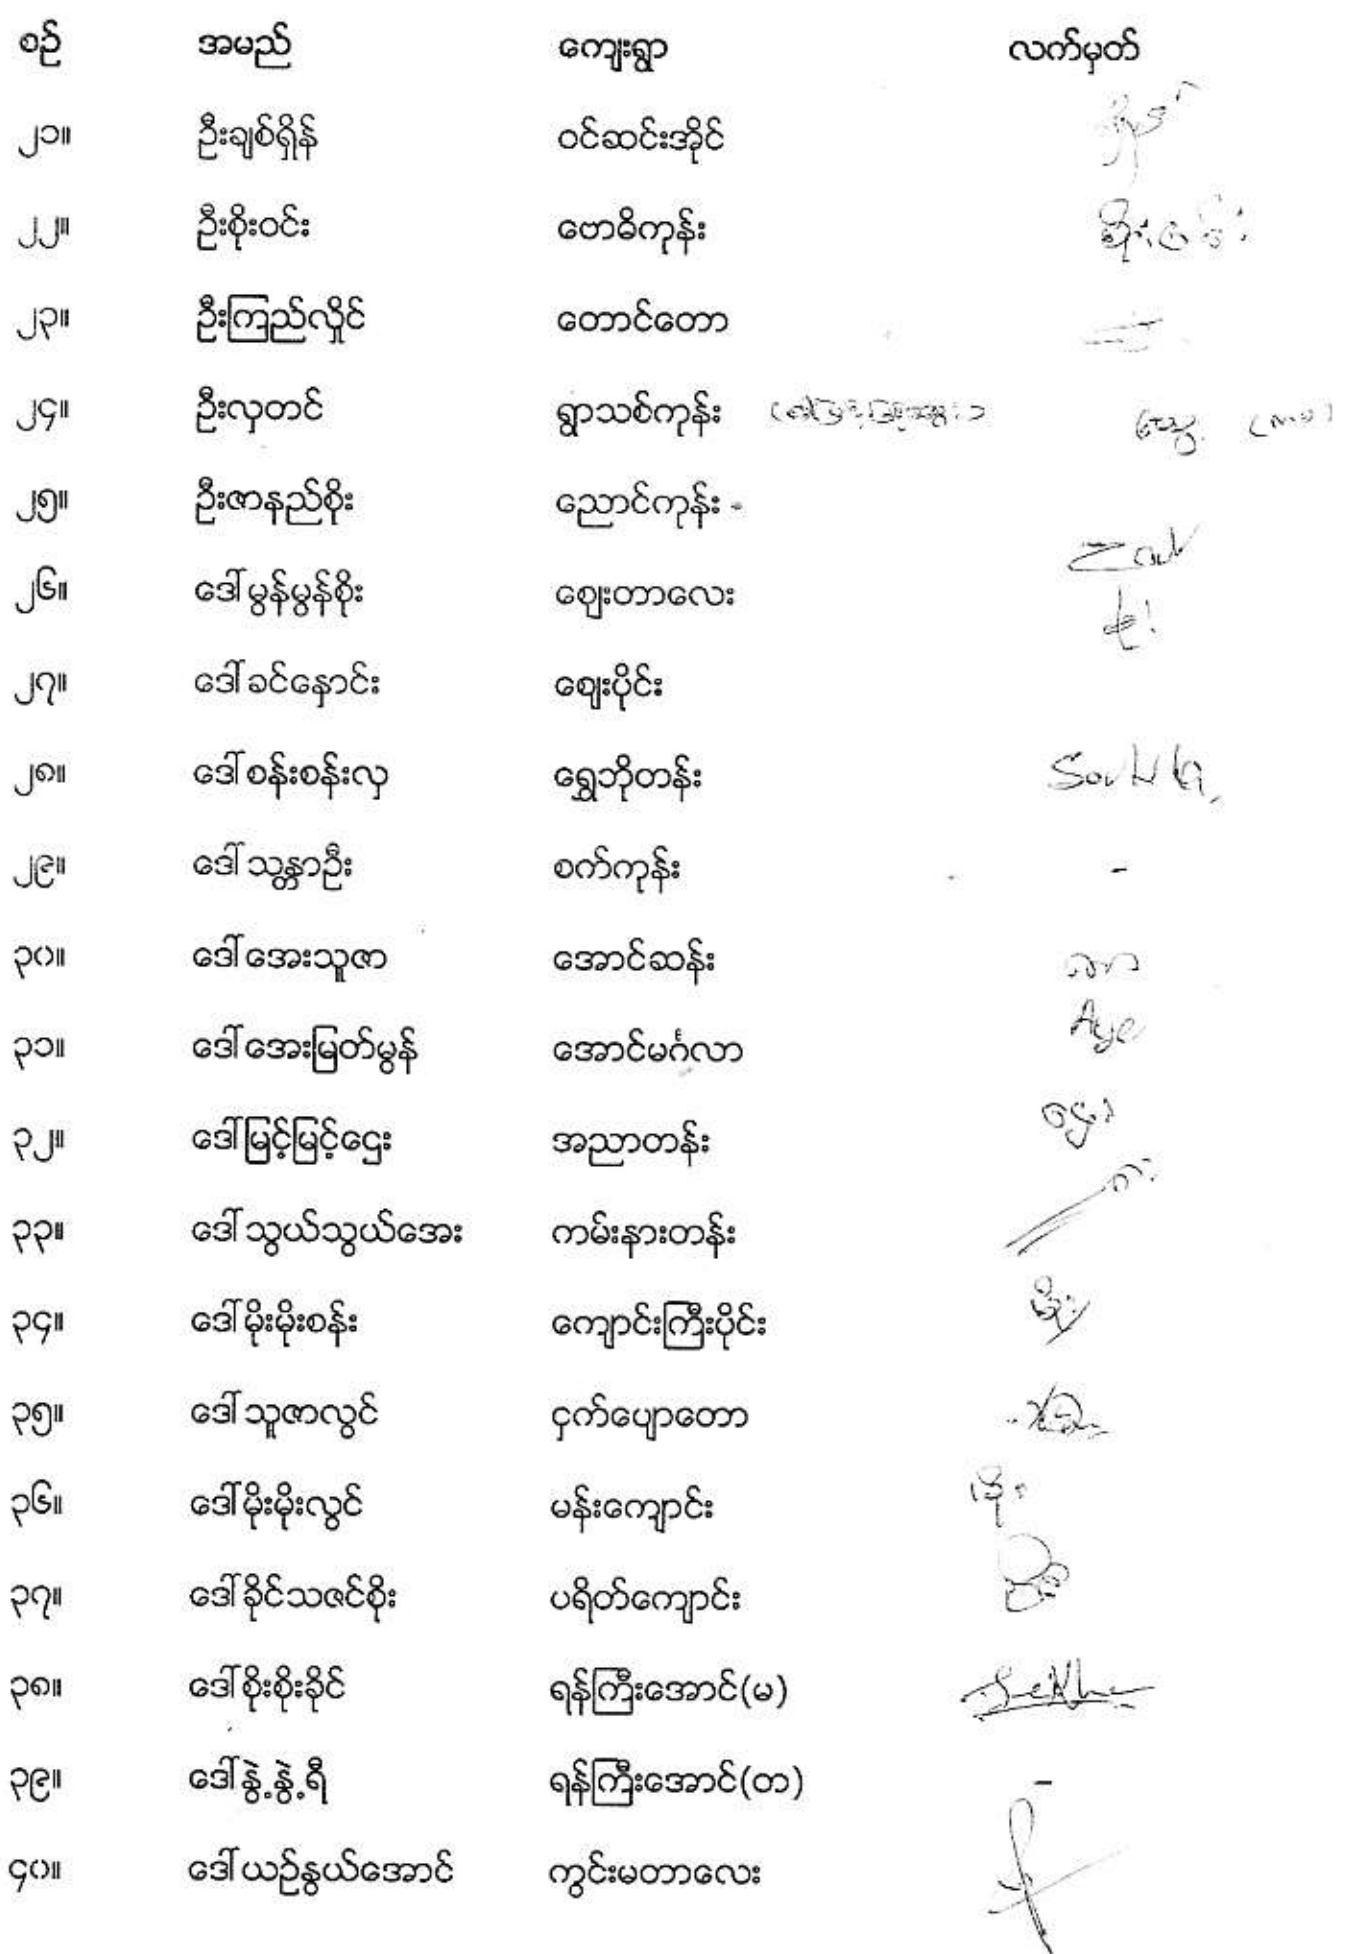 စဉ် အမည် ကျေးရွာ လက်မှတ်
၂၁။ ဦးချစ်ရှိန် ဝင်ဆင်းအိုင်
၂၂။ ဦးစိုးဝင်း ဗောဓိကုန်း စိုးဝင်း
၂၃။ ဦးကြည်လှိုင် တောင်တော
၂၄။ ဦးလှတင် ရွာသစ်ကုန်း
၂၅။ ဦးဇာနည်စိုး ညောင်ကုန်း
၂၆။ ဒေါ်မွန်မွန်စိုး ဈေးတာလေး
၂၇။ ဒေါ်ခင်နှောင်း ဈေးပိုင်း
၂၈။ ဒေါ်စန်းစန်းလှ ရွှေဘိုတန်း
၂၉။ ဒေါ်သန္တာဦး စက်ကုန်း -
၃၀။ ဒေါ်အေးသူဇာ အောင်ဆန်း
၃၁။ ဒေါ်အေးမြတ်မွန် အောင်မင်္ဂလာ Aye
၃၂။ ဒေါ်မြင့်မြင့်ဌေး အညာတန်း ဌေး
၃၃။ ဒေါ်သွယ်သွယ်အေး ကမ်းနားတန်း
၃၄။ ဒေါ်မိုးမိုးစန်း ကျောင်းကြီးပိုင်း မိုး
၃၅။ ဒေါ်သူဇာလွင် ငှက်ပျောတော
၃၆။ ဒေါ်မိုးမိုးလွင် မန်းကျောင်း
၃၇။ ဒေါ်ခိုင်သဇင်စိုး ပရိတ်ကျောင်း
၃၈။ ဒေါ်စိုးစိုးခိုင် ရန်ကြီးအောင်(မ)
၃၉။ ဒေါ်နွဲ့နွဲ့ရီ ရန်ကြီးအောင်(တ) -
၄၀။ ဒေါ်ယဉ်နွယ်အောင် ကွင်းမတာလေး